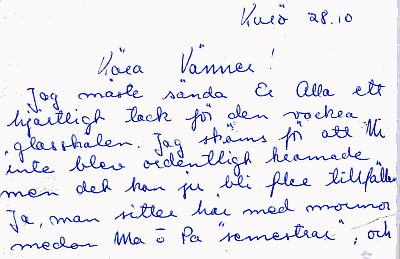 Kurö 28.10
Kära Vänner!
Jag måste sända Er Alla ett
hjärtligt tack för den vackra
glasskålen. Jag skäms för att Ni
inte blev ordentligt
men det kan ju bli fler tillfällen
Ja, man sitter här med mormor
medan Ma o Pa "semestrar", och